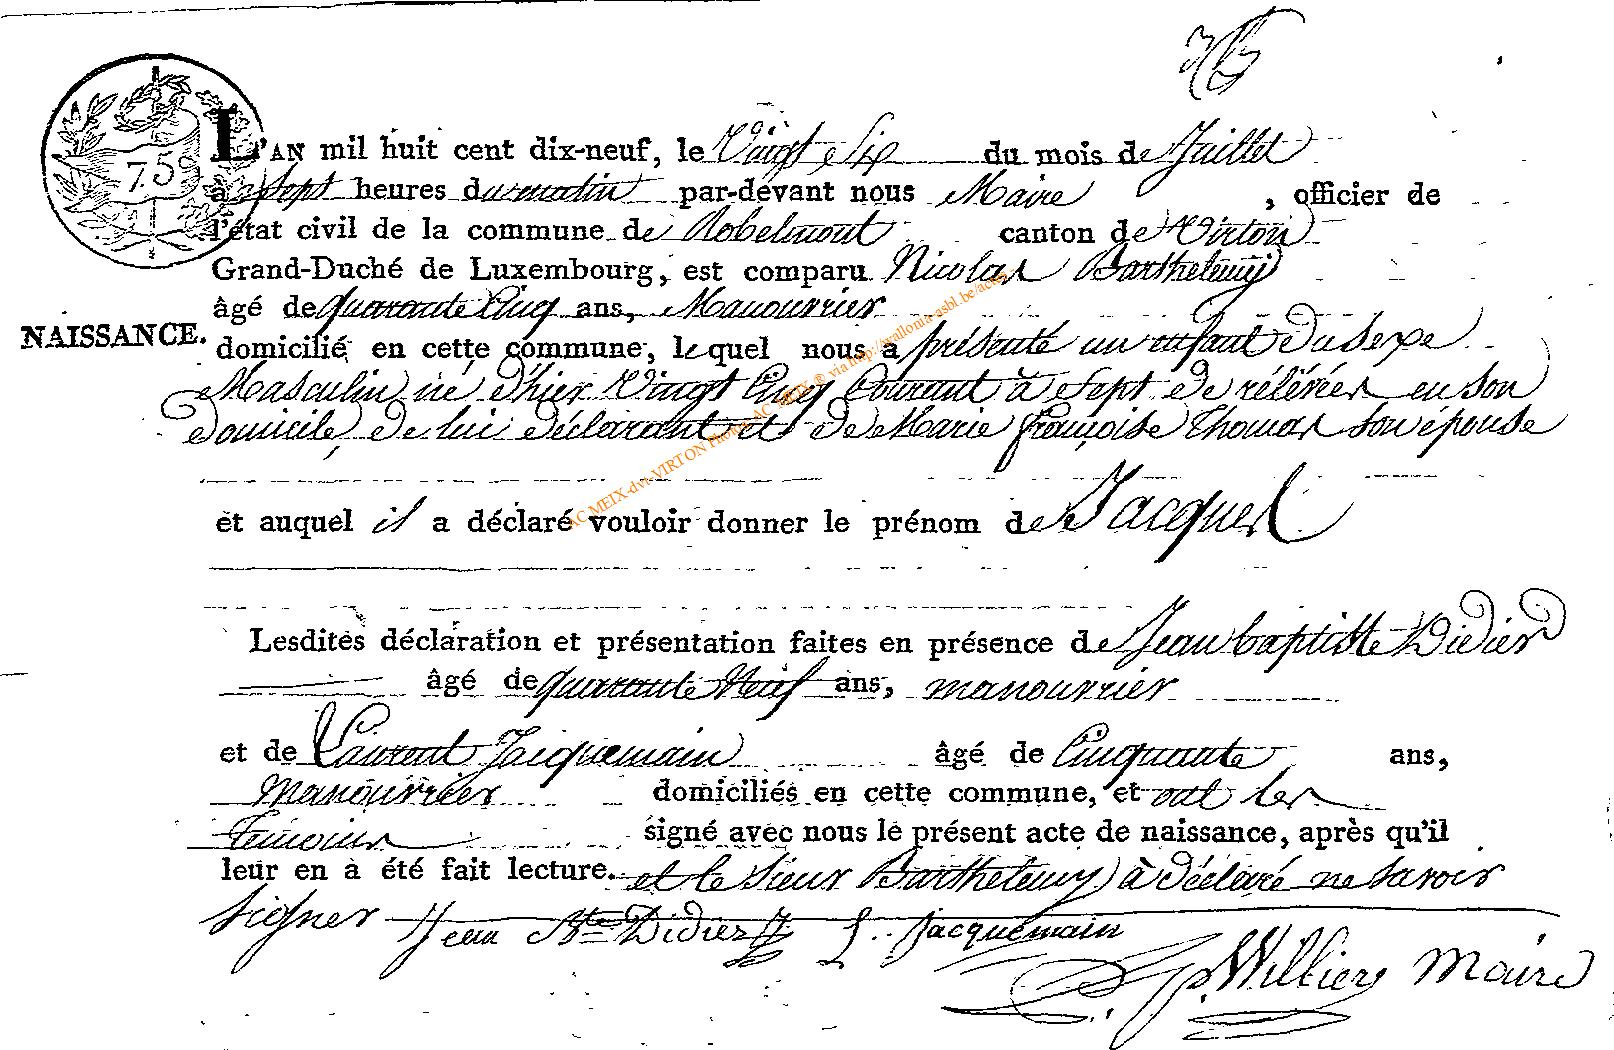 75c
L'AN mil huit cent dix-neuf, le Vingt Six du mois de Juillet
a Sept heures du matin par-devant nous Maire, officier de
l'état civil de la commune de Robelmont canton de Virton
Grand-Duché de Luxembourg, est comparu Nicolas Barthelemy
âgé de quarante Cinq ans, Manouvrier
NAISSANCE.
domicilié en cette commune, lequel nous a présenté un enfant du Sexe
Masculin né d'hier Vingt Cinq Courant à Sept de rélévées en son
domicile, de lui déclarant et de Marie françoise Thomas son épouse
et auquel il a déclaré vouloir donner le prénom de Jacques
Lesdites déclaration et présentation faites en présence de Jean baptiste Didier
âgé de quarante Neuf ans, manouvrier
et de Laurent Jacquemain âgé de Cinquante ans,
Manouvrier domiciliés en cette commune, et ont les
Témoins signé avec nous le présent acte de naissance, après qu'il
leur en à été fait lecture. et le Sieur Barthelemy à déclaré ne savoir
Signer Jean Bte Didier L. Jacquemain
Williers Maire
AC MEIX-dvt-VIRTON Photos AC MEIX ® via http://wallonia-asbl.be/actes